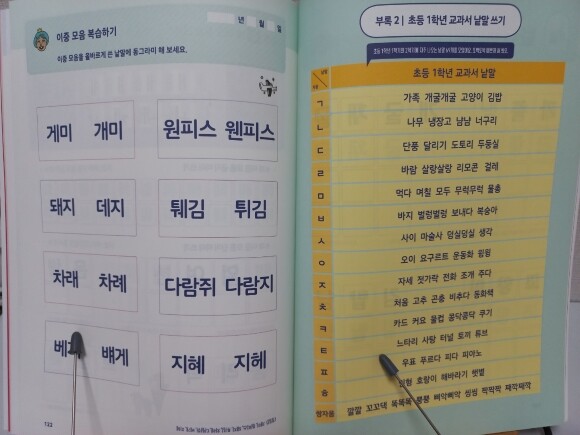 이중 모음 복습하기
년 월 일
이중 모음을 올바르게 쓴 낱말에 동그라미 해 보세요.
게미 개미
원피스 웬피스
돼지 데지
퉤김 튀김
차래 차례
다람쥐 다람지
베 뺴게
지혜 지헤
132
부록 2 | 초등 1학년 교과서 낱말 쓰기
초등 1학년 교과서 낱말
ㄱ 가족 개굴개굴 고양이 김밥
ㄴ 나무 냉장고 냠냠 너구리
ㄷ 단풍 달리기 도토리 두둥실
ㄹ 바람 살랑살랑 리모콘 걸레
ㅁ 먹다 며칠 모두 무럭무럭 물총
ㅂ 바지 벌렁벌렁 보내다 복숭아
ㅅ 사이 마술사 덩실덩실 생각
ㅇ 오이 요구르트 운동화 윙윙
ㅈ 자세 젓가락 전화 조개 주다
ㅊ 처음 고추 곤충 비추다 동화책
ㅋ 카드 커요 물컵 쿵닥쿵닥 쿠키
ㅌ 느타리 사탕 터널 토끼 튜브
ㅍ 우표 푸르다 피다 피아노
ㅎ 인형 호랑이 해바라기 햇볕
쌍자음 깔깔 꼬꼬댁 똑똑똑 뿡뿡 삐악삐악 씽씽 짝짝짝 째깍째깍